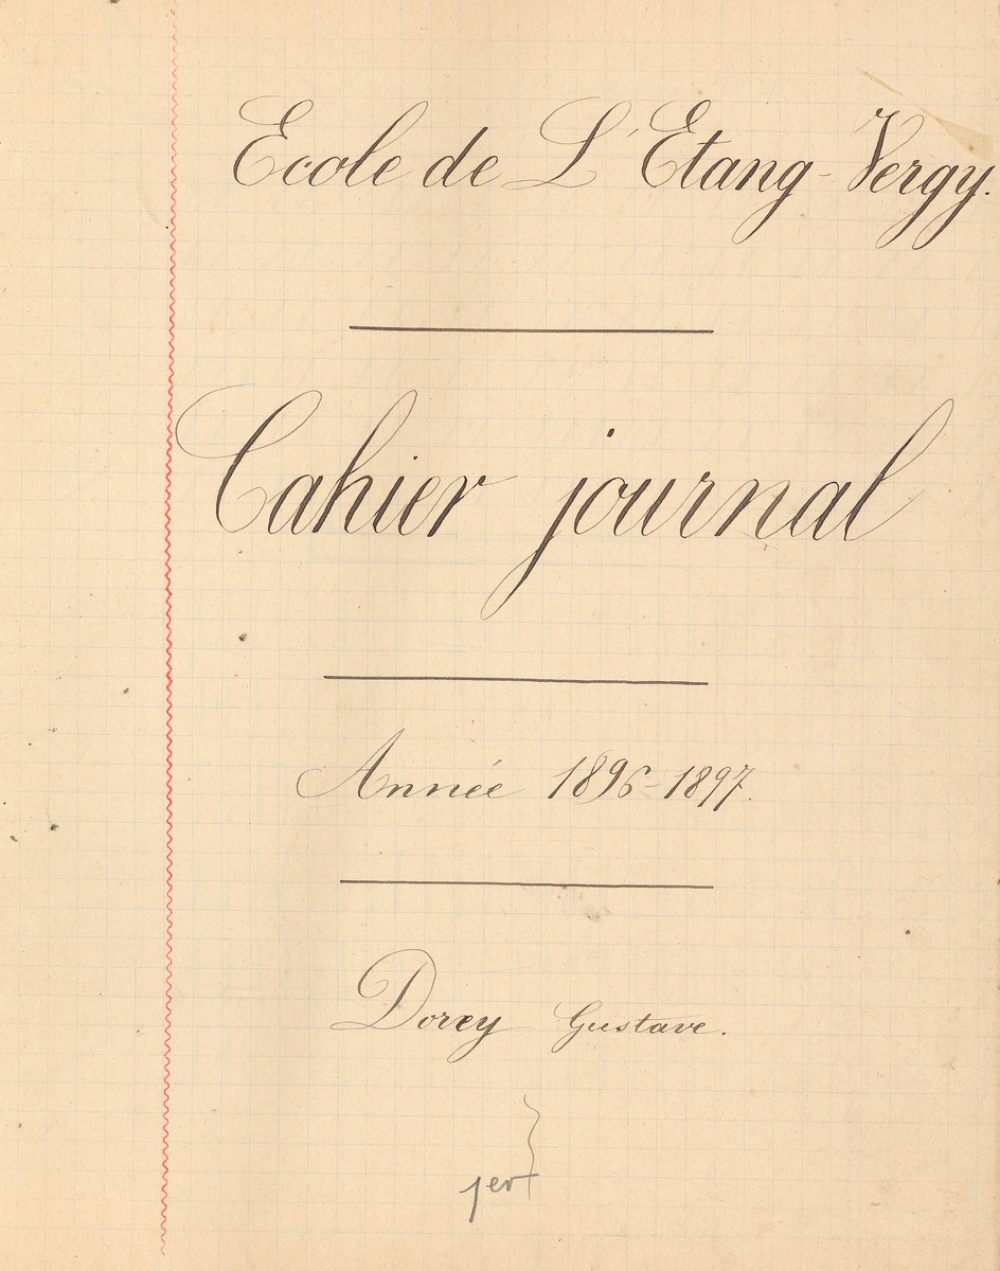 Ecole de L'Etang-Vergy.
Cahier journal
Année 1896-1897.
Dorey Gustave.
1er